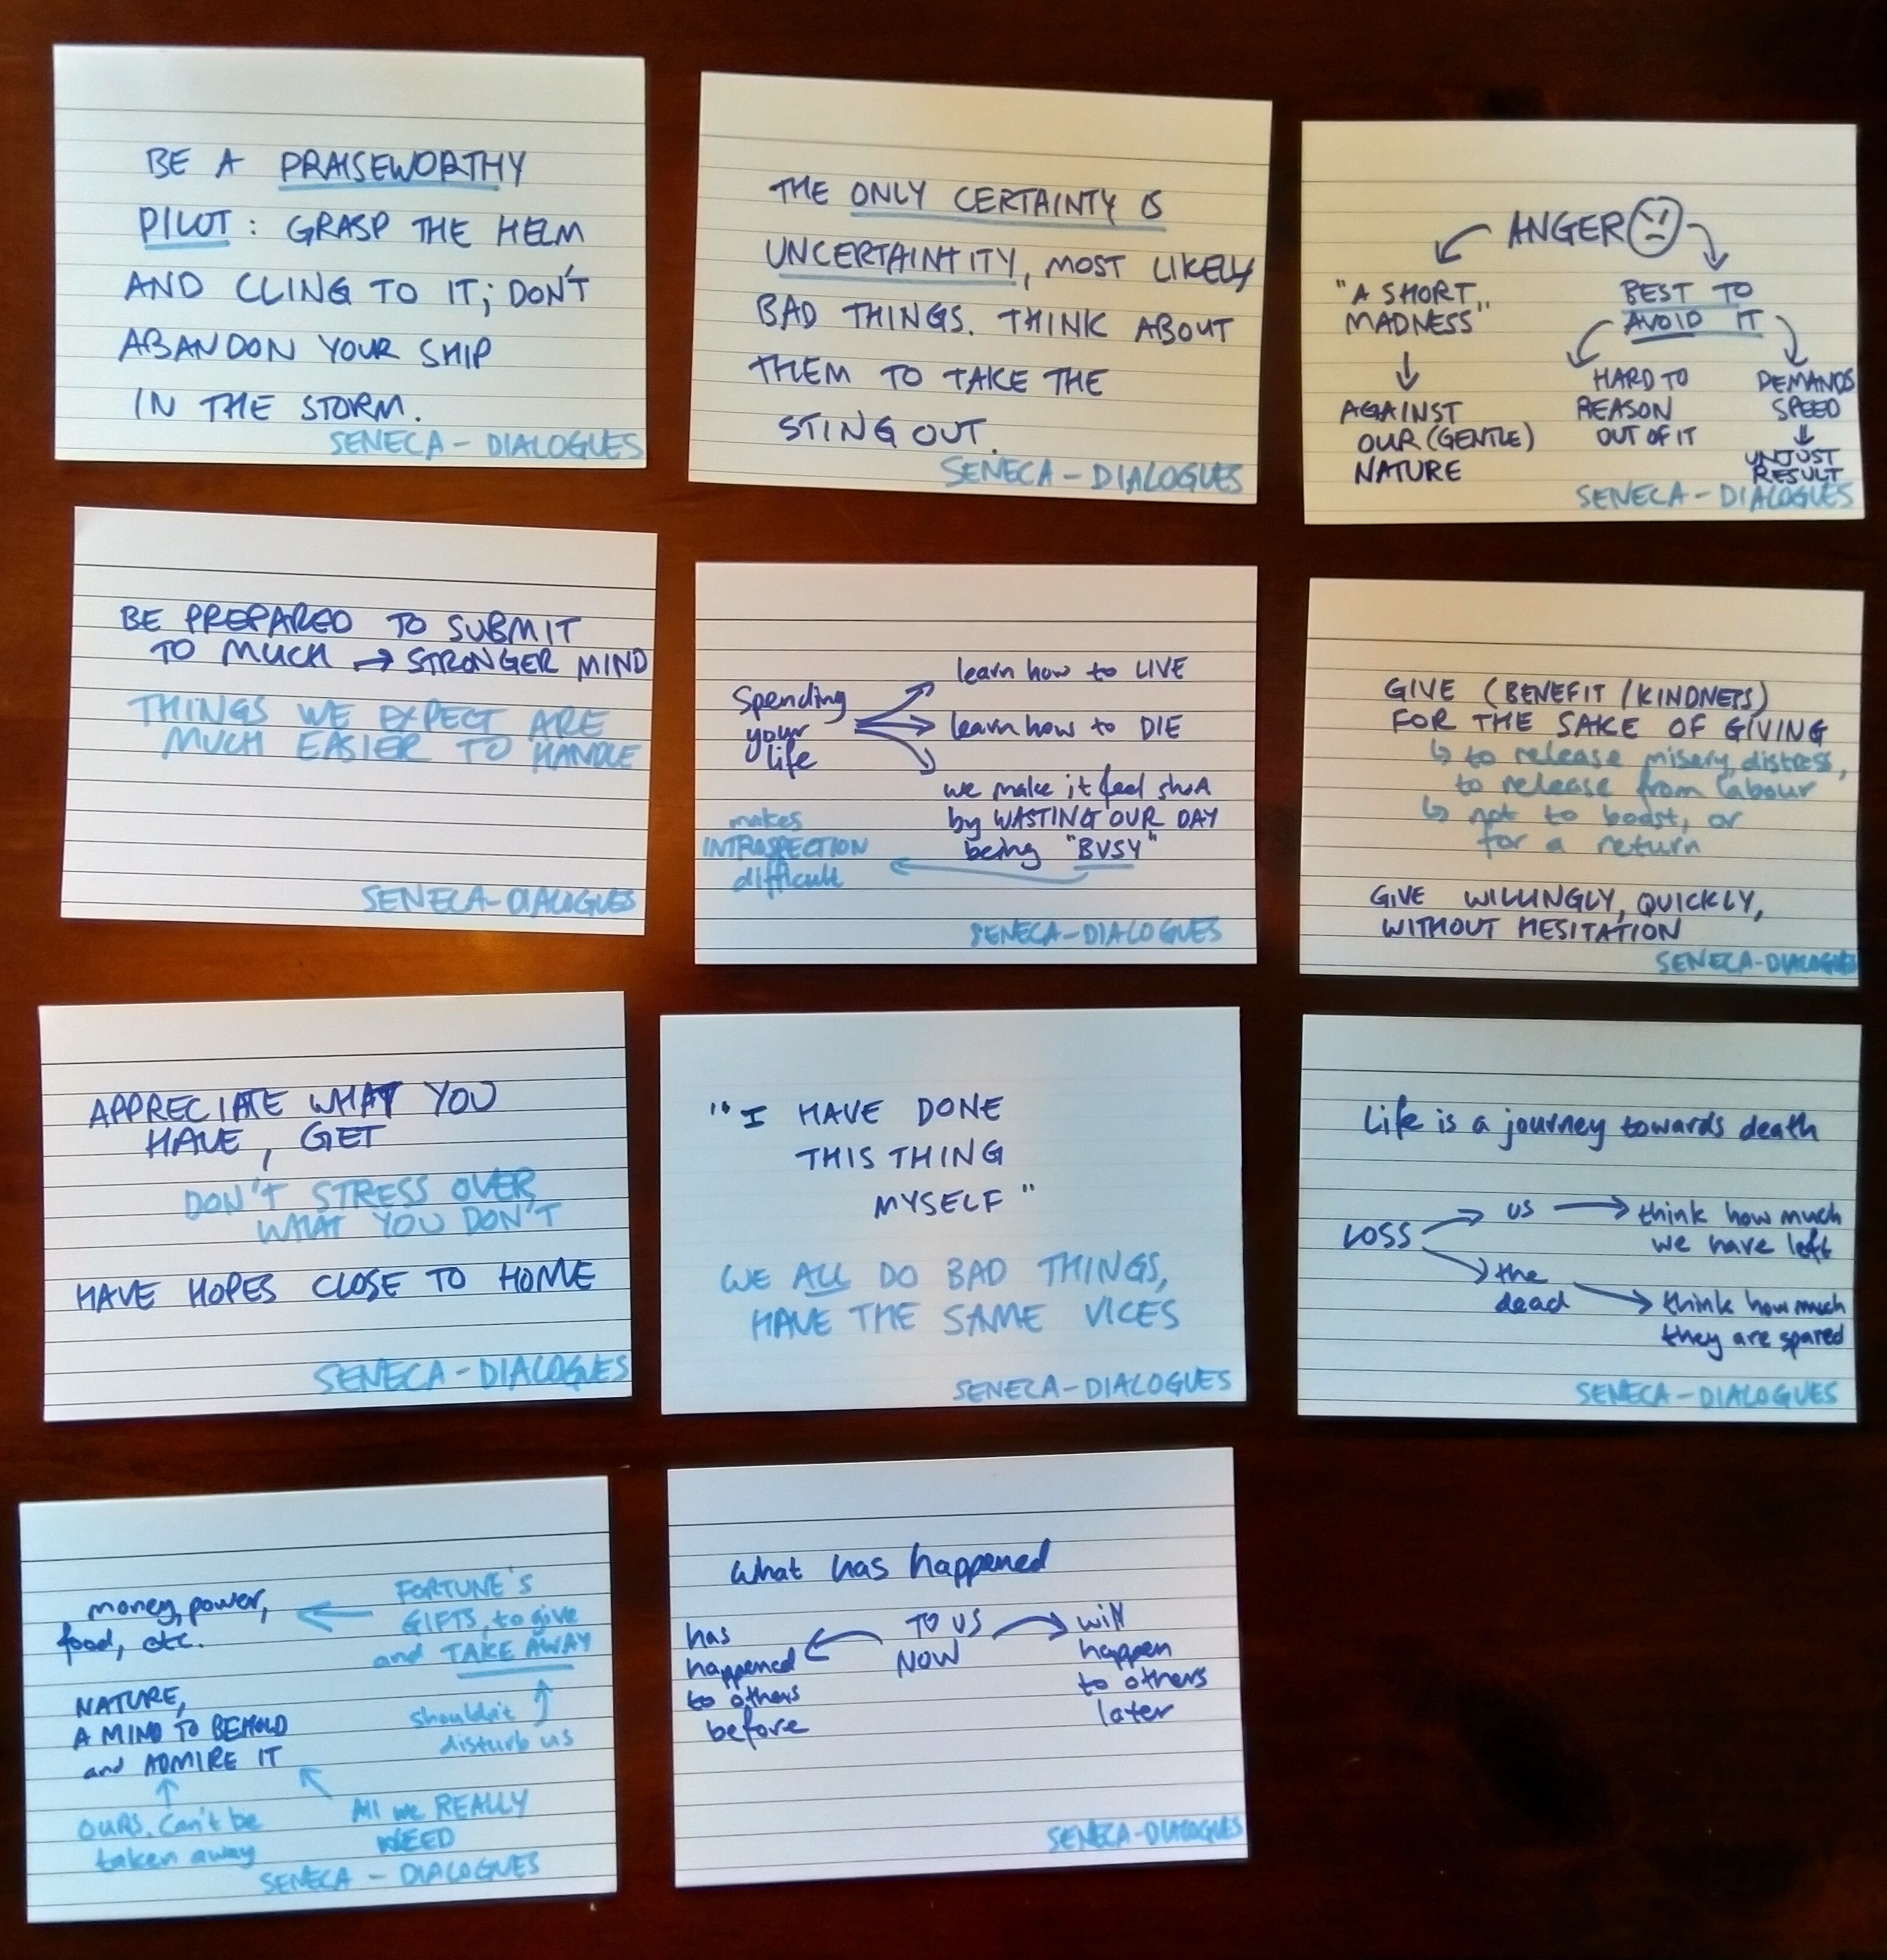 BE A PRAISEWORTHY
PILOT: GRASP THE HELM
AND CLING TO IT; DON'T
ABANDON YOUR SHIP
IN THE STORM.
SENECA - DIALOGUES
THE ONLY CERTAINTY IS
UNCERTAINTITY, MOST LIKELY
BAD THINGS. THINK ABOUT
THEM TO TAKE THE
STING OUT.
SENECA - DIALOGUES
ANGER
"A SHORT
MADNESS"
AGAINST
OUR (GENTLE)
NATURE
BEST TO
AVOID IT
HARD TO
REASON
OUT OF IT
DEMANDS
SPEED
UNJUST
RESULT
SENECA - DIALOGUES
BE PREPARED TO SUBMIT
TO MUCH → STRONGER MIND
THINGS WE EXPECT ARE
MUCH EASIER TO HANDLE
SENECA - DIALOGUES
Spending
your
life
learn how to LIVE
learn how to DIE
we make it feel short
by WASTING OUR DAY
being "BUSY"
makes
INTROSPECTION
difficult
SENECA - DIALOGUES
GIVE (BENEFIT / KINDNESS)
FOR THE SAKE OF GIVING
↳ to release misery, distress,
to release from labour
↳ not to boast, or
for a return
GIVE WILLINGLY, QUICKLY,
WITHOUT HESITATION
SENECA - DIALOGUES
APPRECIATE WHAT YOU
HAVE, GET
DON'T STRESS OVER
WHAT YOU DON'T
HAVE HOPES CLOSE TO HOME
SENECA - DIALOGUES
"I HAVE DONE
THIS THING
MYSELF"
WE ALL DO BAD THINGS,
HAVE THE SAME VICES
SENECA - DIALOGUES
Life is a journey towards death
LOSS
us → think how much
we have left
the
dead → think how much
they are spared
SENECA - DIALOGUES
money, power,
food, etc.
FORTUNE'S
GIFTS, to give
and TAKE AWAY
shouldn't
disturb us
NATURE,
A MIND TO BEHOLD
and ADMIRE IT
OURS. Can't be
taken away
All we REALLY
NEED
SENECA - DIALOGUES
What has happened
TO US
NOW
has
happened
to others
before
will
happen
to others
later
SENECA - DIALOGUES